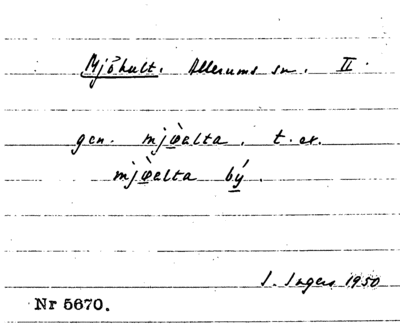 Mjöhult. Allerums sn. II.
gen. mjø̀alta. t. ex.
mjø̀alta bý.
I. Ingers 1950
Nr 5670.